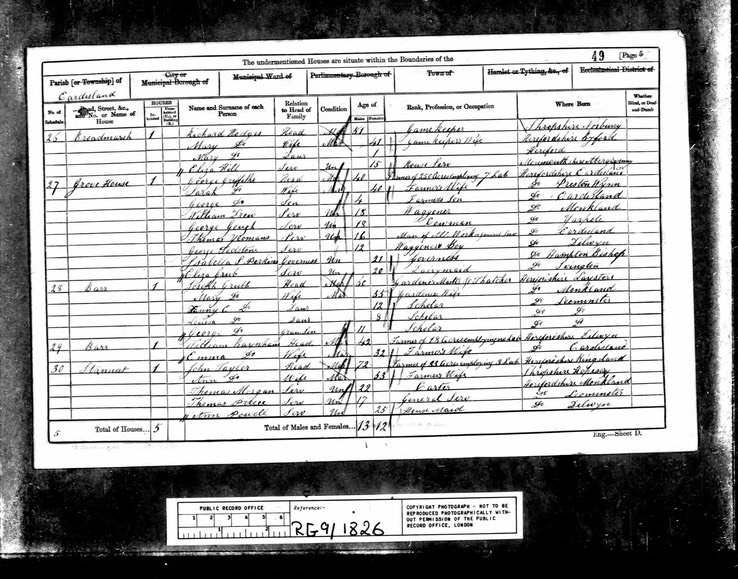 The undermentioned Houses are situate within the Boundaries of the
49 [Page 5
Parish [or Township] of
City or
Municipal Borough of
Municipal Ward of
Parliamentary Borough of
Town of
Hamlet or Tything, &c., of
Ecclesiastical District of
Eardisland
No. of Schedule
Road, Street, &c., and No. or Name of House
HOUSES
Inhabited
Name and Surname of each Person
Relation to Head of Family
Condition
Age of
Males
Females
Rank, Profession, or Occupation
Where Born
Whether Blind, or Deaf-and-Dumb
Richard Hodges Head 51 Gamekeeper Shropshire
Mary Do Wife Mar 41 Gamekeeper's Wife Herefordshire
Mary Do Daur Hereford
Eliza Hill Serv Un 15 House Serv
27 Grove House 1 George Griffiths Head Mar 40 Farmer of employing 7 Lab Herefordshire Eardisland
Sarah Do Wife Mar 40 Farmer's Wife Do Preston Wynn
George Do Son 4 Farmer's Son Do Eardisland
William Drew Serv Un 18 Waggoner Do Monkland
George Gough Serv Un 19 Cowman Do Yarpole
Thomas Yeomans Serv Un 16 Man of All Work Do Eardisland
George Serv 12 Waggoner's Boy Do Dilwyn
Isabella S Perkins Governess Un 21 Governess Do Hampton Bishop
Eliza Grub Serv Un 20 Dairymaid Do Ivington
28 Barr 1 Joseph Grubb Head Mar Gardener Thatcher Herefordshire
Mary Do Wife Mar 55 Gardener's Wife Do Monkland
Fanny C Do Daur 12 Scholar Do Leominster
Louisa Do Daur 8 Scholar Do Do
George Do Grandson 11 Scholar Do Do
29 Barr 1 William Head Mar 42 Farmer of Herefordshire Dilwyn
Emma Do Wife Mar 32 Farmer's Wife Do Eardisland
30 1 John Taylor Head Mar 72 Farmer of employing 3 Lab Herefordshire Kingsland
Ann Do Wife Mar 53 Farmer's Wife Shropshire
Thomas Morgan Serv Un 22 Carter Herefordshire Monkland
Thomas Serv Un 17 General Serv Do Leominster
Ann Powell Serv Un 25 House Maid Do Dilwyn
5 Total of Houses... 5 Total of Males and Females... 13 12
Eng.—Sheet D.
PUBLIC RECORD OFFICE
1 2 3 4 5 6
1 2
Reference:-
RG9/1826
COPYRIGHT PHOTOGRAPH - NOT TO BE
REPRODUCED PHOTOGRAPHICALLY WITH-
OUT PERMISSION OF THE PUBLIC
RECORD OFFICE, LONDON